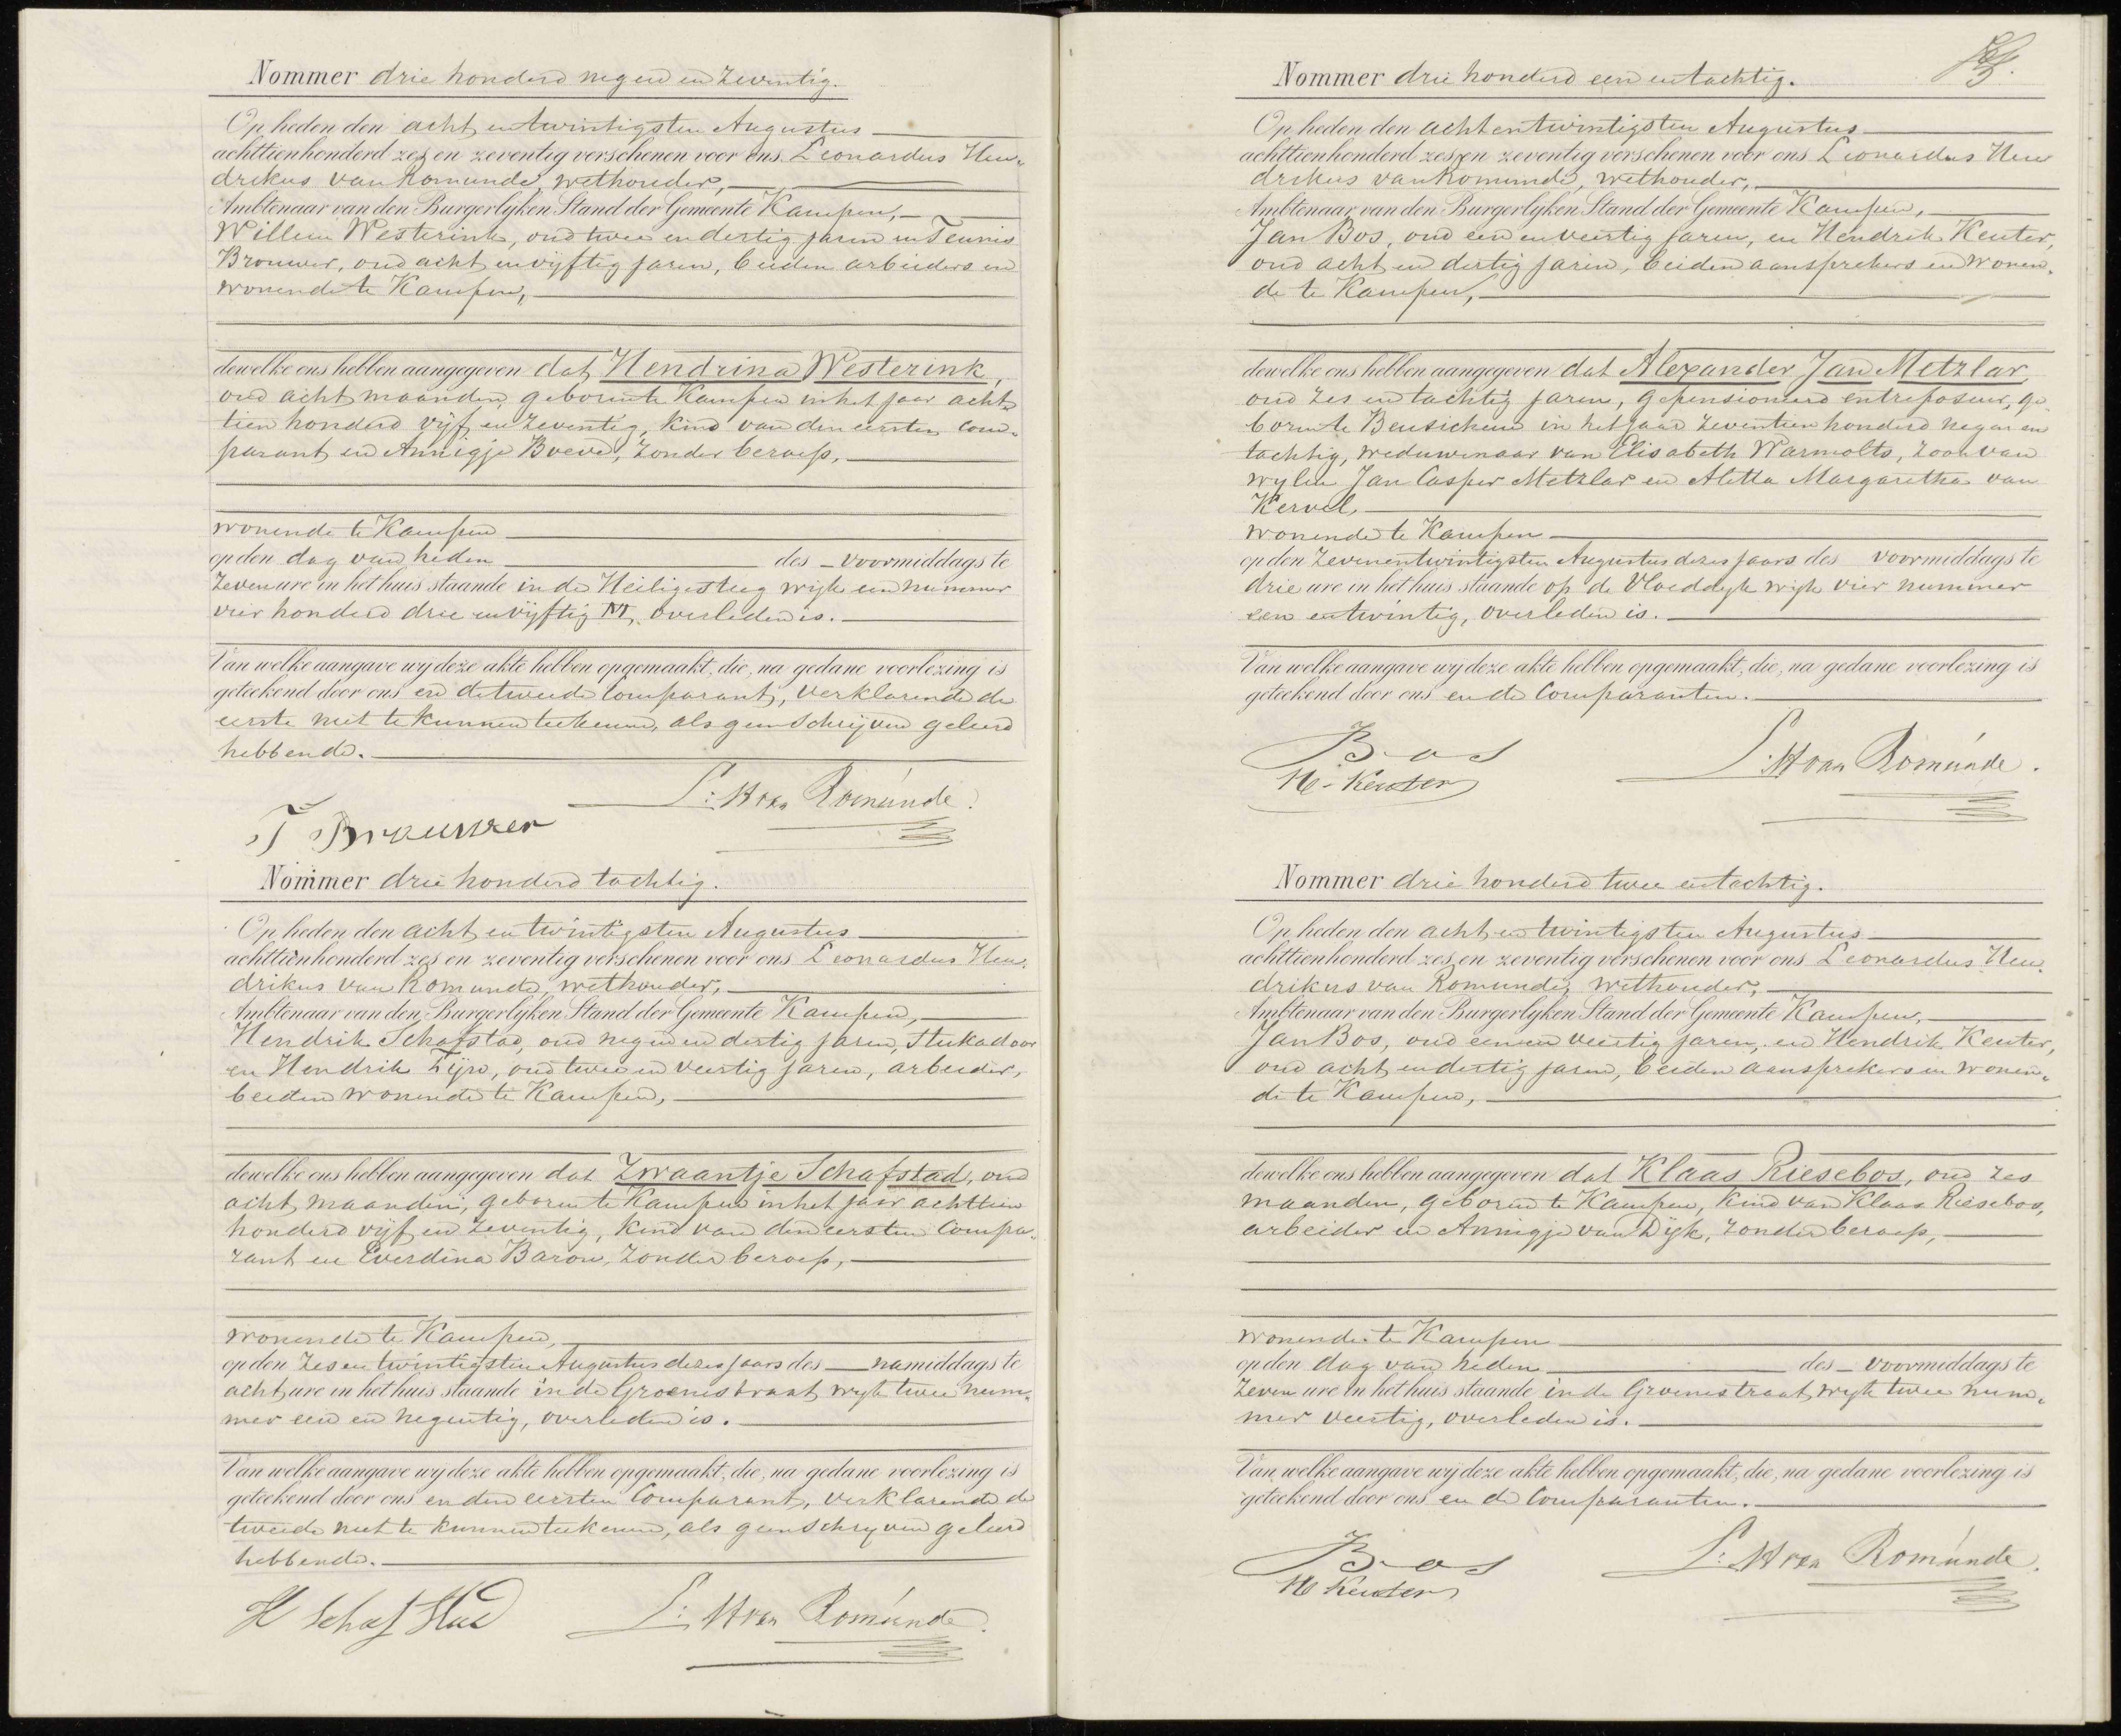 Nommer drie honderd negen en zeventig.
Op heden den acht en twintigsten Augustus
achttienhonderd zes en zeventig verschenen voor ons Leonardus Hen-
drikus van Romunde, wethouder,
Ambtenaar van den Burgerlyken Stand der Gemeente Kampen,
Willem Westerink, oud twee en dertig jaren en Teunis
Brouwer, oud acht en vyftig jaren, beiden arbeiders en
wonende te Kampen,
dewelke ons hebben aangegeven dat Hendrina Westerink,
oud acht maanden, geboren te Kampen in het jaar acht-
tien honderd vyf en zeventig, kind van den eersten Com-
parant en Annigje Boeve, zonder beroep,
wonende te Kampen
op den dag van heden des voormiddags te
zeven ure in het huis staande in de Heiligesteeg wyk een nummer
vier honderd drie en vyftig M, overleden is.
Van welke aangave wy deze akte hebben opgemaakt, die, na gedane voorlezing is
geteekend door ons en de tweede Comparant, verklarende de
eerste niet te kunnen teekenen, als geen schryven geleerd
hebbende.
L: H van Romúnde.
T Brouwer
Nommer drie honderd tachtig.
Op heden den acht en twintigsten Augustus
achttienhonderd zes en zeventig verschenen voor ons Leonardus Hen-
drikus van Romunde, wethouder,
Ambtenaar van den Burgerlyken Stand der Gemeente Kampen,
Hendrik Schafstad, oud negen en dertig jaren, Stukadoor
en Hendrik Tyn, oud twee en veertig jaren, arbeider,
beiden wonende te Kampen,
dewelke ons hebben aangegeven dat Zwaantje Schafstad, oud
acht maanden, geboren te Kampen in het jaar achttien
honderd vyf en zeventig, kind van den eersten Compa-
rant en Everdina Baron, zonder beroep,
wonende te Kampen,
op den zes en twintigsten Augustus dezes jaars des namiddags te
acht ure in het huis staande in de Groenestraat wyk twee num-
mer een en negentig, overleden is.
Van welke aangave wy deze akte hebben opgemaakt, die, na gedane voorlezing is
geteekend door ons en den eersten Comparant, verklarende de
tweede niet te kunnen teekenen, als geen schryven geleerd
hebbende.
H Schafstad L: H van Romúnde.
Nommer drie honderd een en tachtig.
Op heden den acht en twintigsten Augustus
achttienhonderd zes en zeventig verschenen voor ons Leonardus Hen
drikus van Romunde, wethouder,
Ambtenaar van den Burgerlyken Stand der Gemeente Kampen,
Jan Bos, oud een en veertig jaren, en Hendrik Keuter,
oud acht en dertig jaren, beiden aansprekers en wonen-
de te Kampen,
dewelke ons hebben aangegeven dat Alexander Jan Metzlar,
oud zes en tachtig jaren, gepensioneerd entreposeur, ge
boren te Beusichem in het jaar zeventien honderd negen en
tachtig, weduwenaar van Elisabeth Warmolts, zoon van
wylen Jan Casper Metzlar en Aletta Margaretha van
Kervel,
wonende te Kampen
op den zevenentwintigsten Augustus dezes jaars des voormiddags te
drie ure in het huis staande op de Vloeddyk wyk vier nummer
een en twintig, overleden is.
Van welke aangave wy deze akte hebben opgemaakt, die, na gedane voorlezing is
geteekend door ons en de Comparanten.
Bos L: H van Romúnde.
H. Keuter
Nommer drie honderd twee en tachtig.
Op heden den acht en twintigsten Augustus
achttienhonderd zes en zeventig verschenen voor ons Leonardus Hen-
drikus van Romunde, wethouder,
Ambtenaar van den Burgerlyken Stand der Gemeente Kampen,
Jan Bos, oud een en veertig jaren, en Hendrik Keuter,
oud acht en dertig jaren, beiden aansprekers en wonen-
de te Kampen,
dewelke ons hebben aangegeven dat Klaas Riesebos, oud zes
maanden, geboren te Kampen, kind van Klaas Riesebos,
arbeider en Annigje van Dyk, zonder beroep,
wonende te Kampen
op den dag van heden des voormiddags te
zeven ure in het huis staande in de Groenestraat wyk twee num-
mer veertig, overleden is.
Van welke aangave wy deze akte hebben opgemaakt, die, na gedane voorlezing is
geteekend door ons en de Comparanten.
Bos L: H van Romúnde.
H Keuter